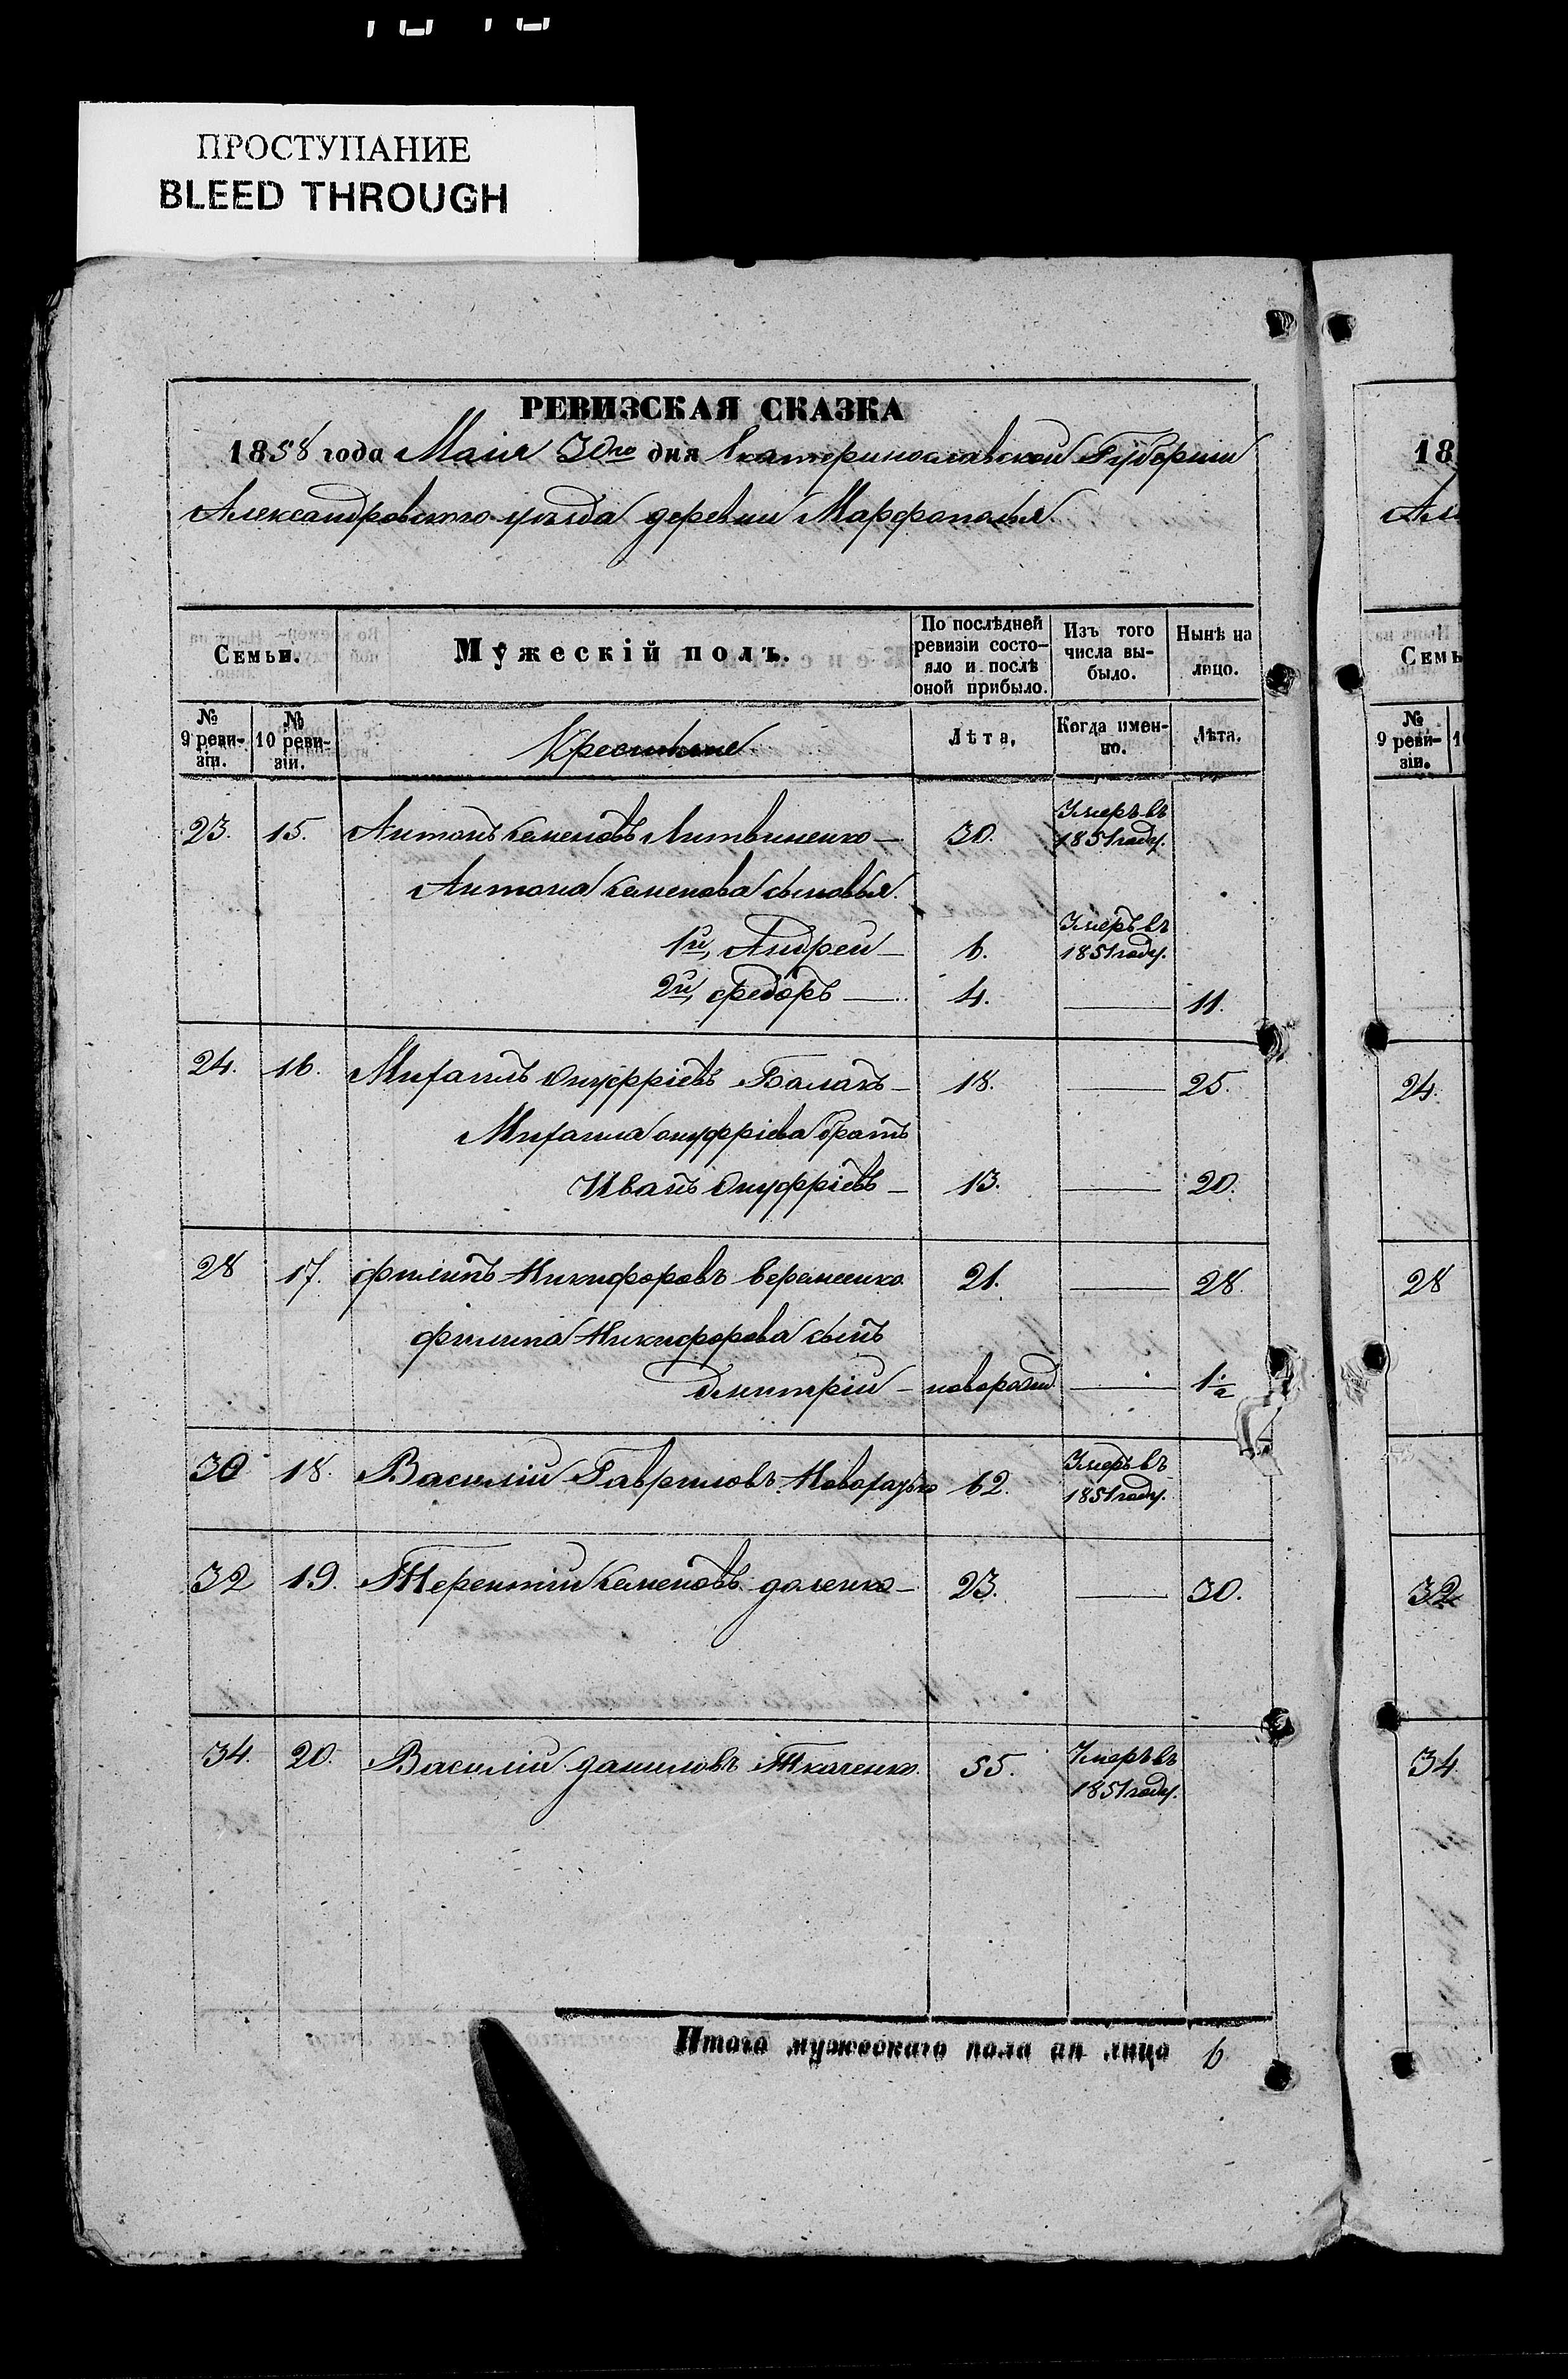 ПРОСТУПАНИЕ
BLEED THROUGH
РЕВИЗСКАЯ СКАЗКА
1858 года Маія 30го дня Екатеринославской Губерніи
Александровскаго уѣзда деревни Марфополья
Семьи. Мужескій полъ. По послѣдней ревизіи состо-яло и послѣ оной прибыло. Изъ того числа вы-было. Нынѣ на лицо.
№ 9 реви-зіи. № 10 реви-зіи. Крестьяне Лѣта, Когда имен-но. Лѣта.
23. 15. Антонъ Семеновъ Литвиненко — 30. Умеръ въ 1851 году.
Антона Семенова сыновья
1й, Андрей — 6. Умеръ въ 1851 году.
2й, Федоръ — 4. — 11.
24. 16. Михаилъ Онуфріевъ Балакъ — 18. — 25.
Михаила Онуфріева братъ
Иванъ Онуфріевъ — 13. — 20.
28 17. Филипъ Никифоровъ 21. — 28.
Филипа Никифорова сынъ
Дмитрій — новорожд. — 1½
30 18. Василій Гавриловъ 62. Умеръ въ 1851 году.
32 19. Терентій Семеновъ Доленко — 23. — 30.
34. 20. Василій Даниловъ Ткаченко 55. Умеръ въ 1851 году.
Итого мужескаго пола на лицо 6
18
Семь
№ 9 реви-зіи.
24.
28
32
34